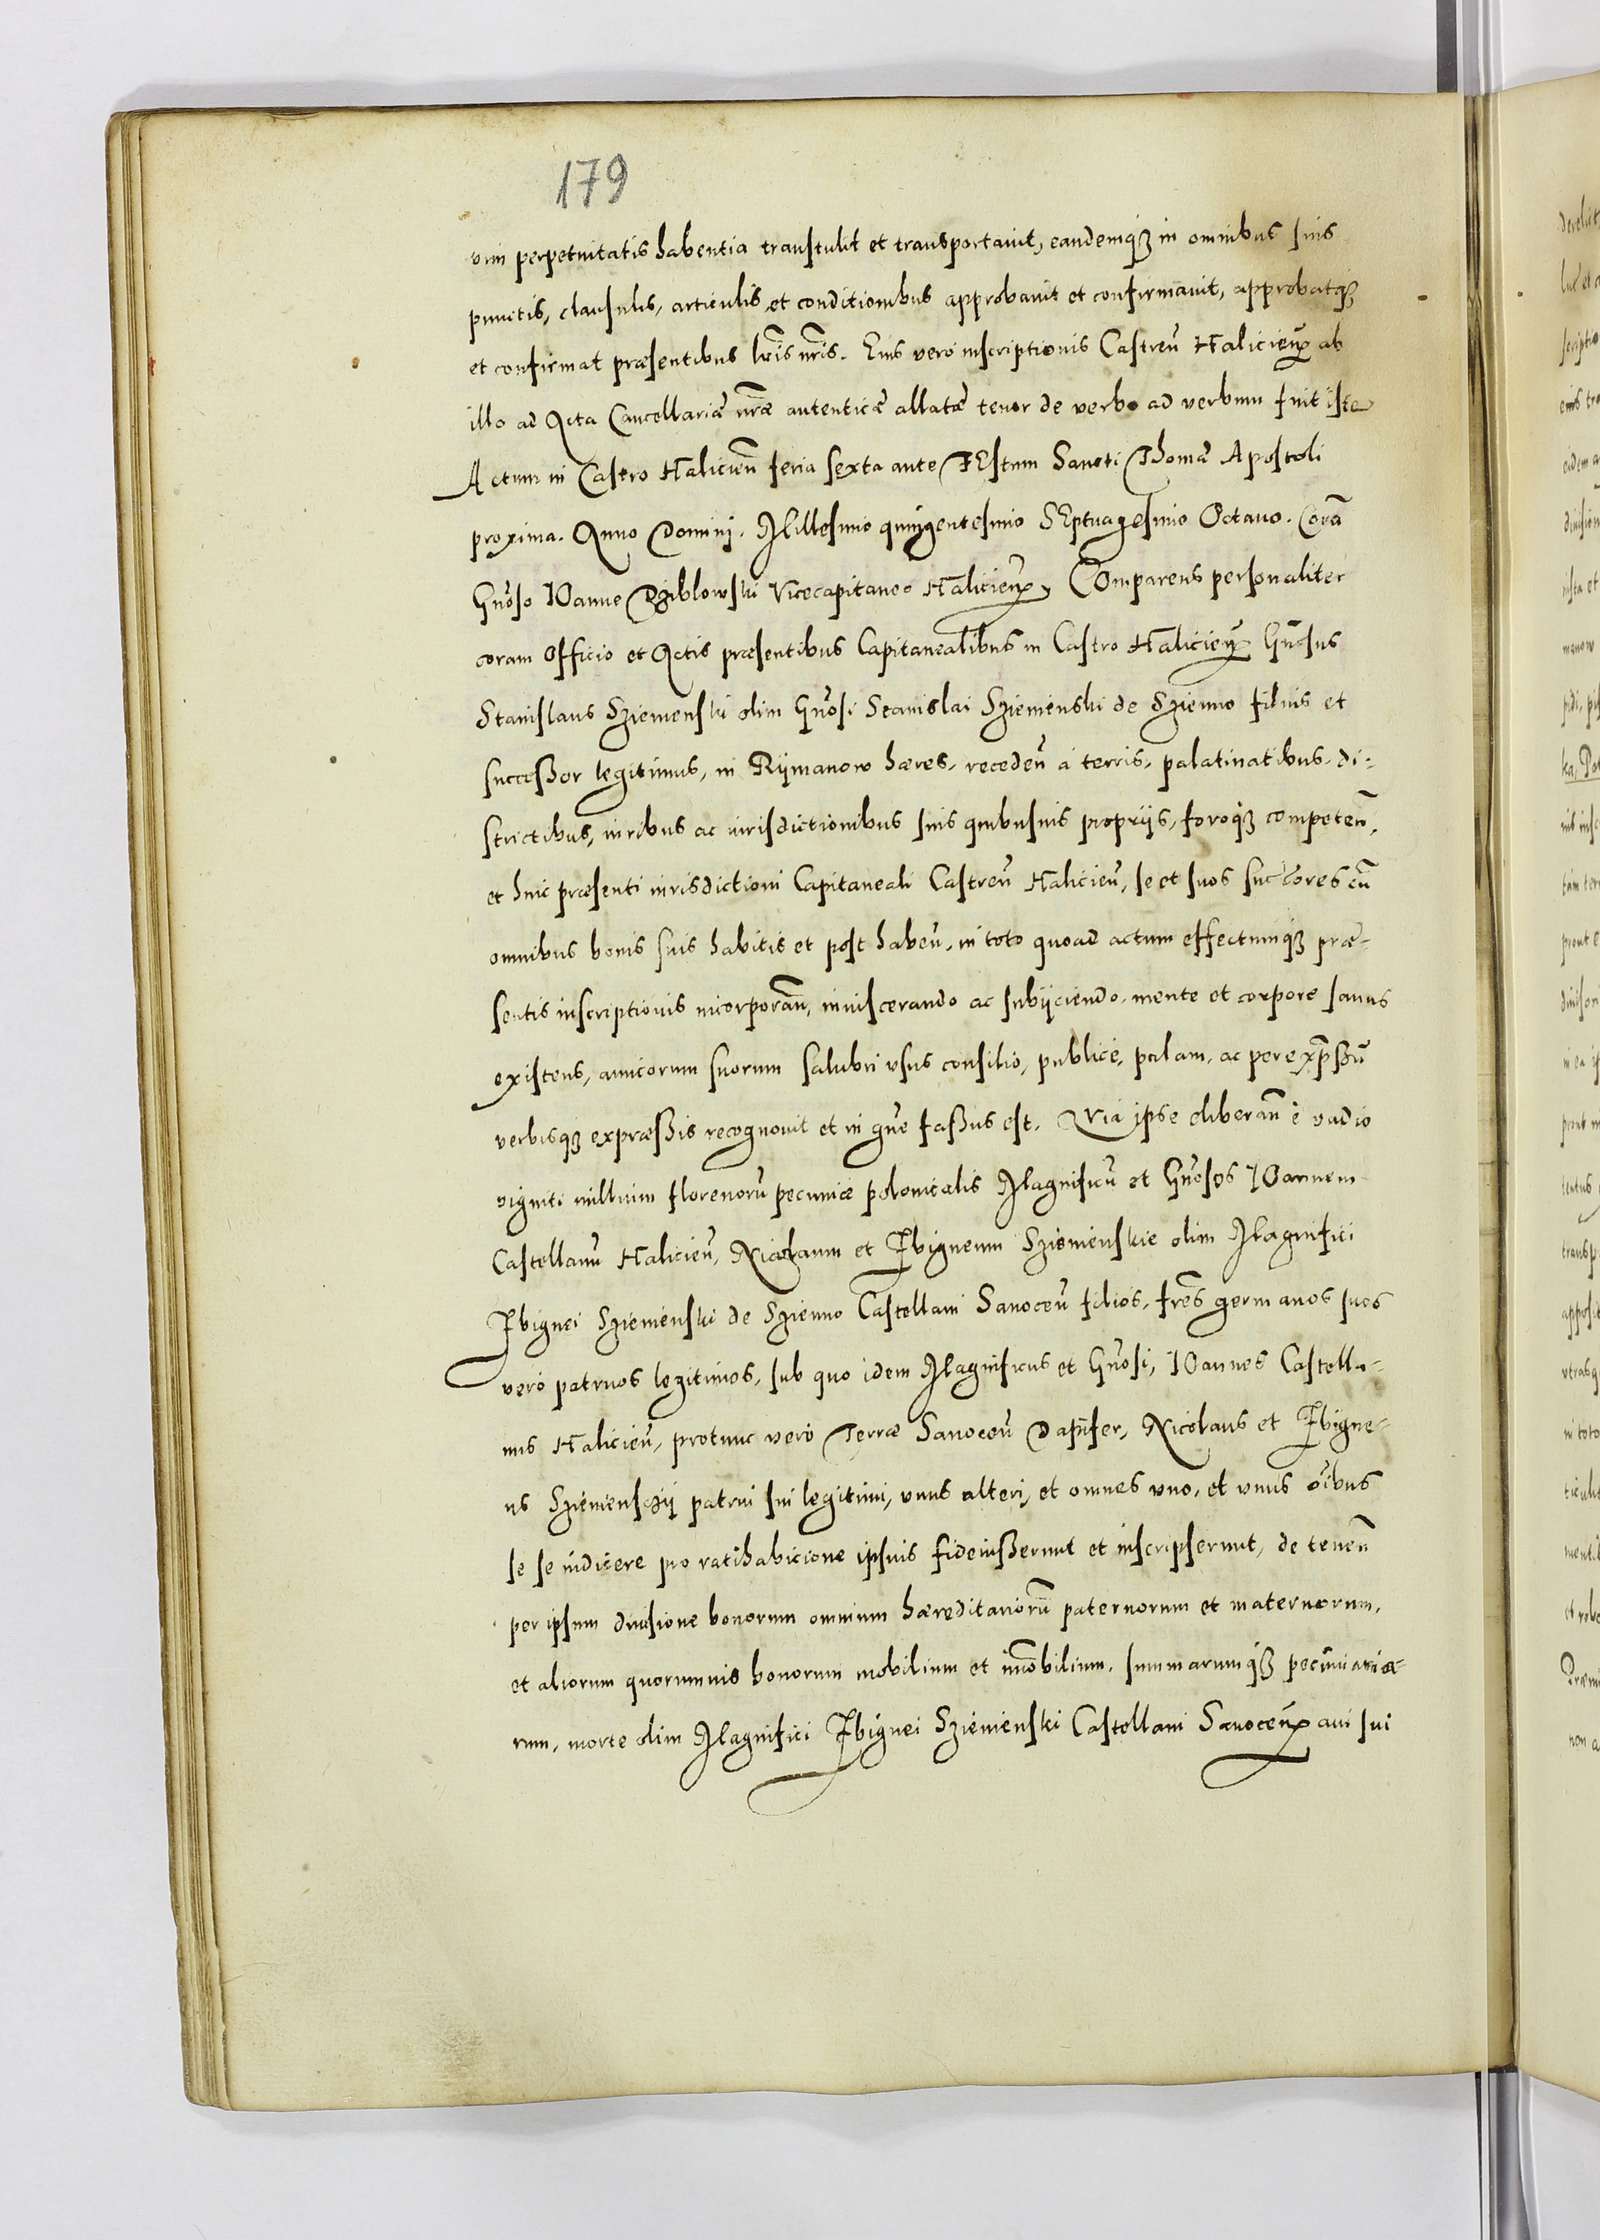 179
vim perpetuitatis habentia transtulit et transportauit, eandemq3 in omnibus suis
punctis, clausulis, articulis et conditionibus approbauit et confirmauit, approbatq3
et confirmat præsentibus lris nris. Eius vero inscriptionis Castreñ Halicieñ ab
illo ad Acta Cancellariæ nræ autenticæ allatæ tenor de verbo ad verbum fuit iste
Actum in Castro Halicieñ feria sexta ante FEstum Sancti Thomæ Apostoli
proxima. Anno Domini. Millesimo quingentesimo SEptuagesimo Octauo. Corā
Gnoso IOanne Dziblowski Vicecapitaneo Halicieñ, COmparens personaliter
coram Officio et Actis præsentibus Capitanealibus in Castro Halicieñ Gnosus
Stanislaus Sziemenski olim Gnosi Stanislai Sziemienski de Szienno filius et
succeßor legitimus, in Rymanow hæres, recedeñ à terris, palatinatibus, di-
strictibus, iuribus ac iurisdictionibus suis quibusuis proprijs, foroq3 competeñ,
et huic præsenti iurisdictioni Capitaneali Castreñ Halicieñ, se et suos succ̄ores cū
omnibus bonis suis habitis et post habeñ, in toto quoad actum effectumq3 præ-
sentis inscriptionis incorporañ, inuiscerando ac subijciendo, mente et corpore sanus
existens, amicorum suorum salubri vsus consilio, publicè, palam, ac per expßū
verbisq3 expræßis recognouit et in gñe faßus est. Quia ipse eliberañ è vadio
viginti millium florenorū pecuniæ polonicalis Magnificū et Gnosos IOannem
Castellanū Halicieñ, Nicolaum et Zbigneum Sziemienskie olim Magnifici
Zbignei Sziemienski de Szienno Castellani Sanoceñ filios, frēs germanos suos
verò patruos legitimos, sub quo idem Magnificus et Gnosi, IOannes Castella-
nus Halicieñ, protunc verò Terræ Sanoceñ Dapifer, Nicolaus et Zbigne-
us Sziemienscÿ patrui sui legitimi, vnus alteri, et omnes vno, et vnus oībus
se se indicere pro ratihabicione ipsius fideiußerunt et inscripserunt, de teneñ
per ipsum diuisione bonorum omnium hæreditariorū paternorum et maternorum,
et aliorum quorumuis bonorum mobilium et imobilium, summarumq3 pecuniaria-
rum, morte olim Magnifici Zbignei Sziemienski Castellani Sanoceñ aui sui